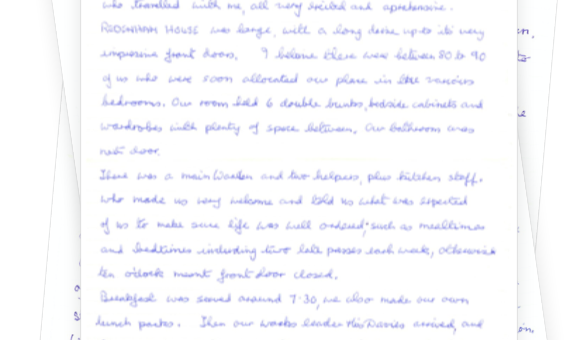 who travelled with me, all very excited and apprehensive.
REDENHAM HOUSE was large, with a long drive up to its very
impressive front doors. I believe there were between 80 to 90
of us who were soon allocated our place in the various
bedrooms. Our room held 6 double bunks, bedside cabinets and
wardrobes with plenty of space between. Our bathroom was
next door.
There was a main Warden and two helpers, plus kitchen staff.
who made us very welcome and told us what was expected
of us to make sure life was well ordered, such as mealtimes
and bedtimes including two late passes each week, otherwise
ten o'clock meant front door closed.
Breakfast was served around 7.30, we also made our own
lunch packs. Then our works leader Mr Davies arrived, and